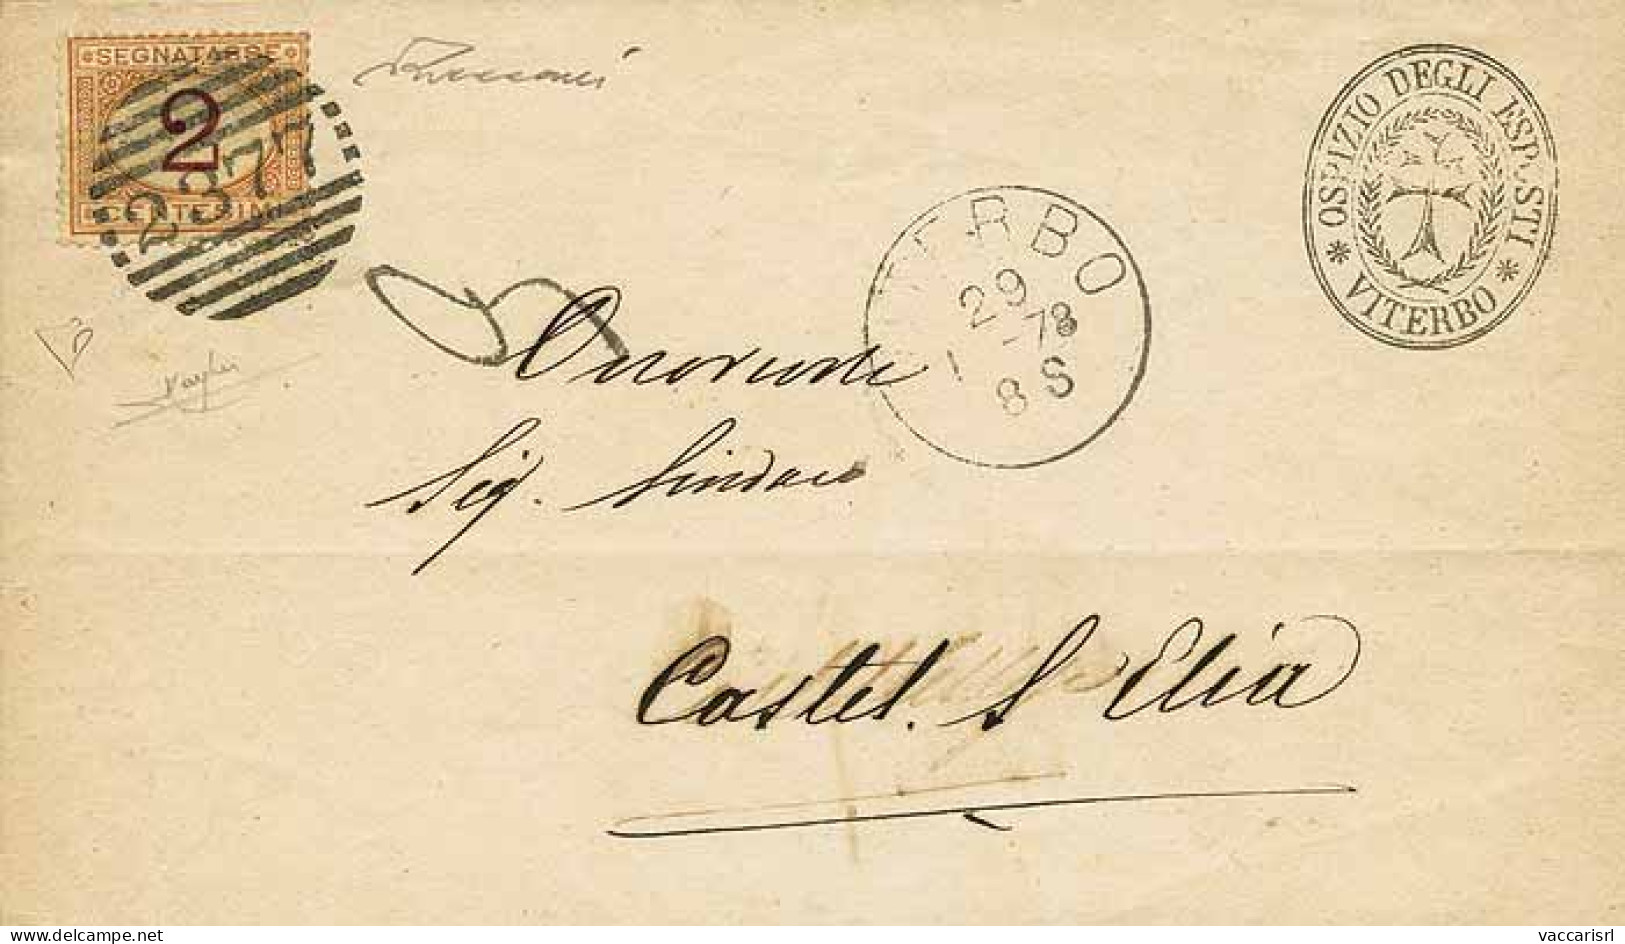 SEGNATASSE
2
CENTESIMI
2377
OSPIZIO DEGLI ESPOSTI
* VITERBO *
VITERBO
29
1 -78
8 S
Onorevole
Sig. Sindaco
Castel. S Elia
www.delcampe.net
vaccarisrl